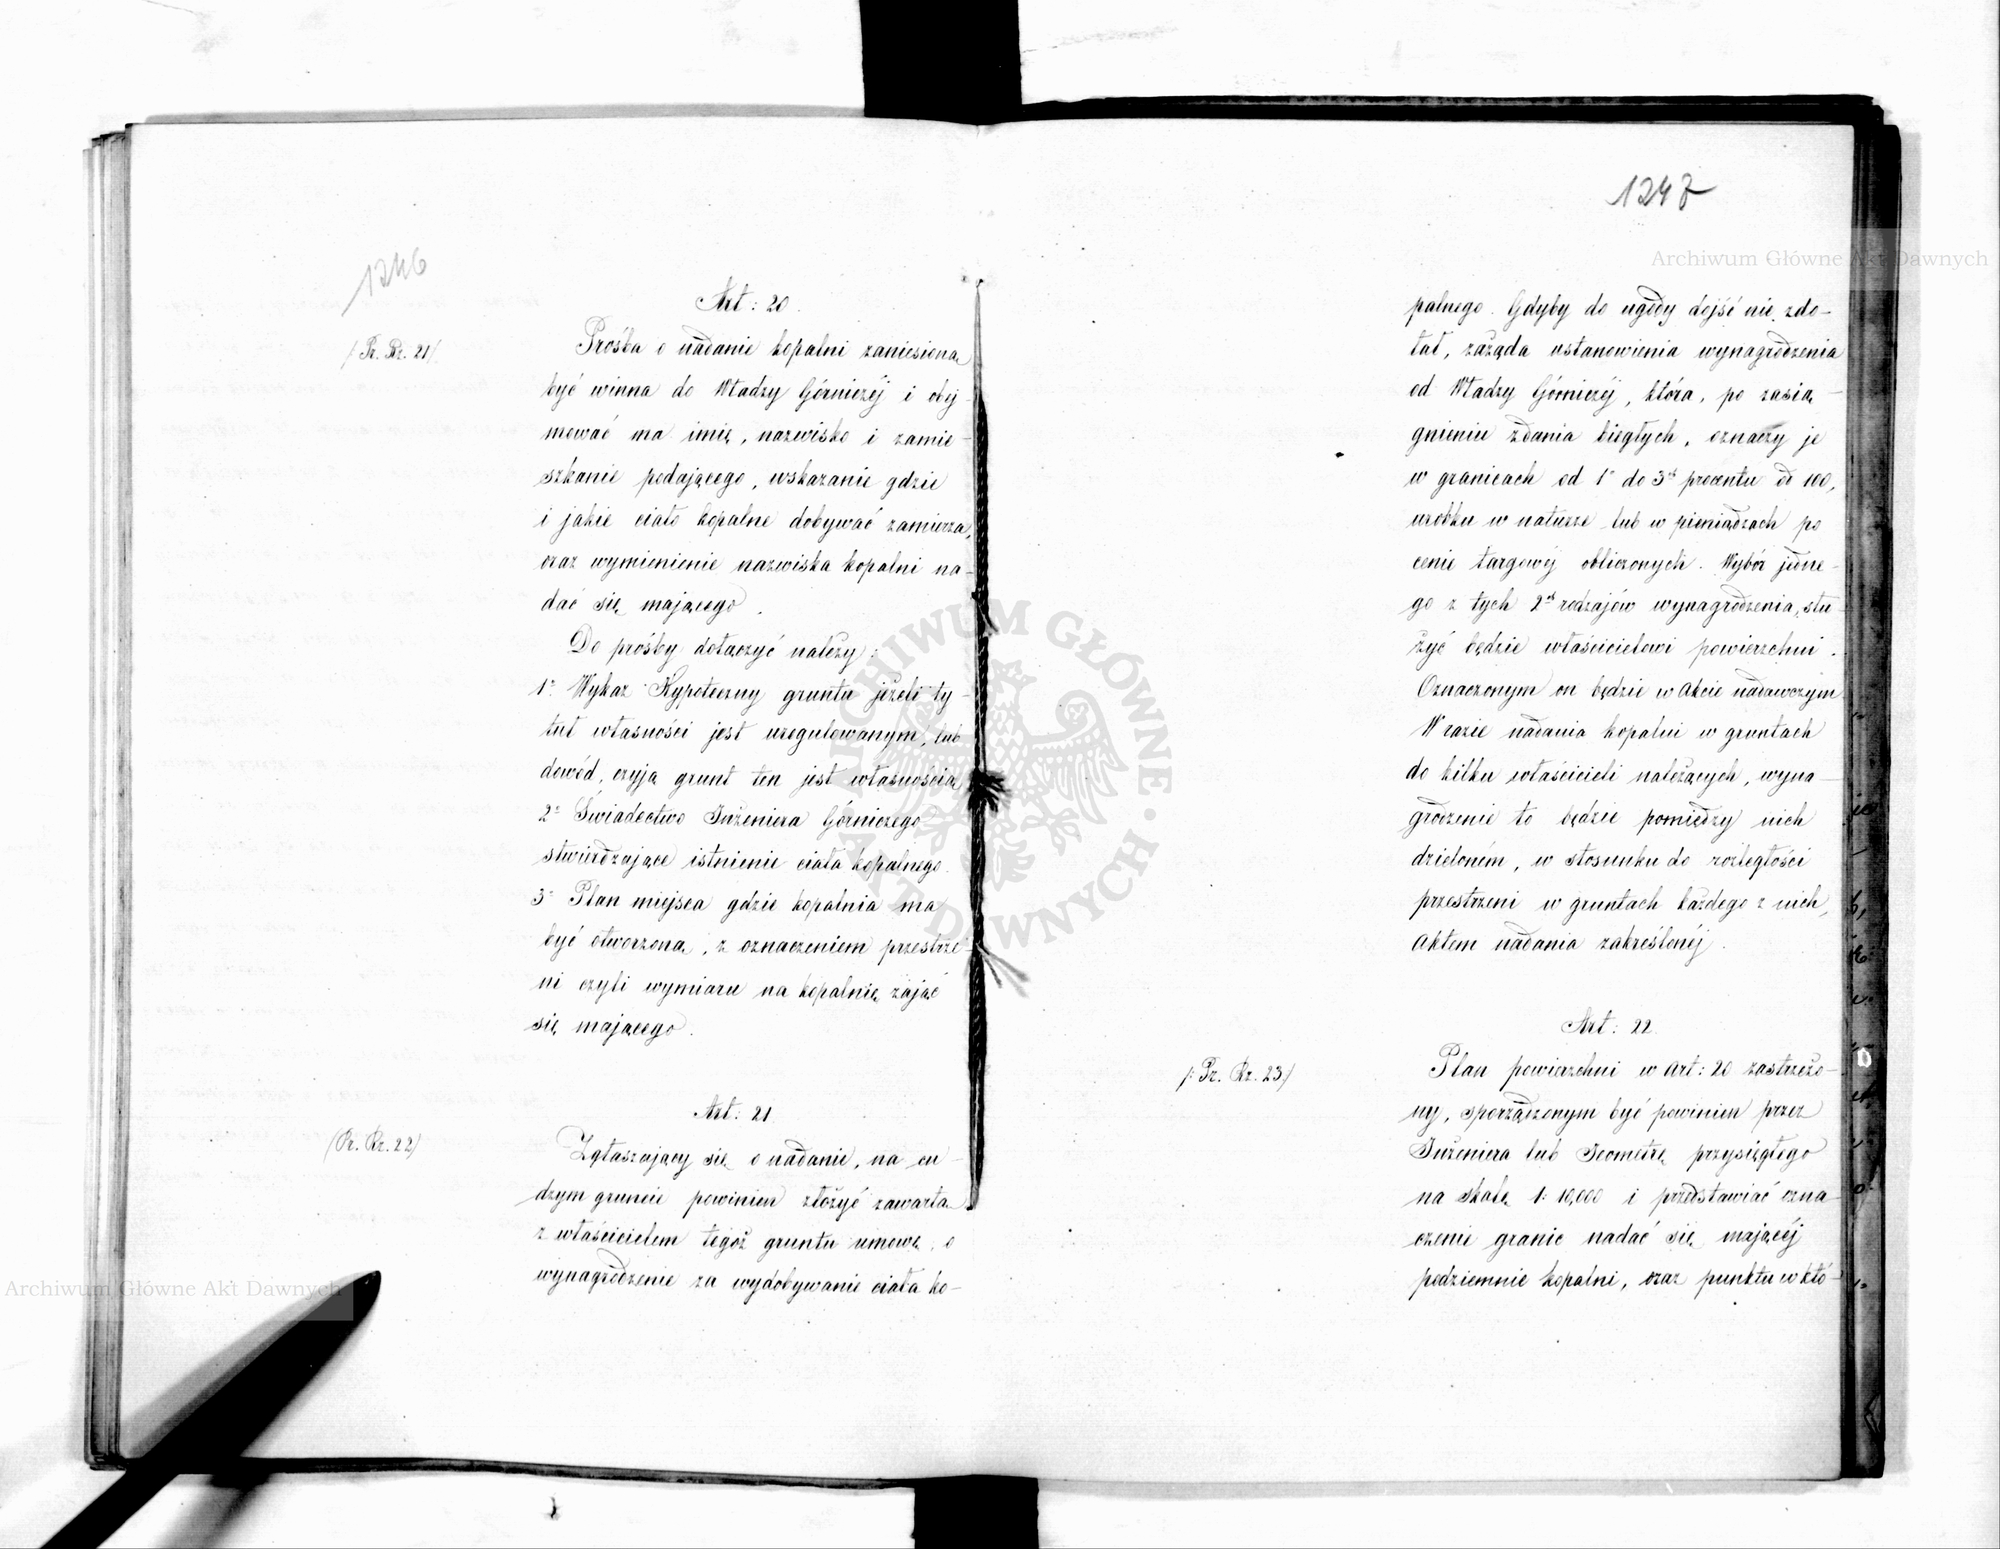 1246
Art: 20.
/: Pr. Rz. 21/.
Prośba o nadanie kopalni zaniesiona
być winna do Władzy Górniczéj i obej-
mować ma imię, nazwisko i zamie-
szkanie podającego, wskazanie gdzie
i jakie ciało kopalne dobywać zamierza,
oraz wymienienie nazwiska kopalni na-
dać się mającego.
Do prośby dołączyć należy:
1º Wykaz Hypoteczny gruntu jeżeli ty-
tuł własności jest uregulowanym, lub
dowód, czyją grunt ten jest własnością
2º Świadectwo Inżeniera Górniczego
stwierdzające istnienie ciała kopalnego.
3º Plan miejsca gdzie kopalnia ma
być otworzoną, z oznaczeniem przestrze-
ni czyli wymiaru na kopalnię zająć
się mającego.
Art: 21.
(Pr. Rz. 22)
Zgłaszający się o nadanie, na cu-
dzym gruncie powinien złożyć zawartą
z właścicielem tegoż gruntu umowę, o
wynagrodzenie za wydobywanie ciała ko-
1247
palnego. Gdyby do ugody dojść nie zdo-
łał, zażąda ustanowienia wynagrodzenia
od Władzy Górniczéj, która, po zasią-
gnieniu zdania biegłych, oznaczy je
w granicach od 1º do 3ch procentu od 100,
urobku w naturze lub w pieniądzach po
cenie targowéj obliczonych. Wybór jedne-
go z tych 2ch rodzajów wynagrodzenia, słu-
żyć będzie właścicielowi powierzchni.
Oznaczonym on będzie w Akcie nadawczym
W razie nadania kopalni w gruntach
do kilku właścicieli należących, wyna-
grodzenie to będzie pomiędzy nich
dzieloném, w stosunku do rozległości
przestrzeni w gruntach każdego z nich,
Aktem nadania zakreślonéj.
Art: 22.
/: Pr. Rz. 23/
Plan powierzchni w Art: 20 zastrzeżo-
ny, sporządzonym być powinien przez
Inżeniera lub Jeometrę przysięgłego
na skalę 1: 10,000 i przedstawiać ozna-
czenie granic nadać się mającéj
podziemnie kopalni, oraz punktu w któ-
Archiwum Główne Akt Dawnych
Archiwum Główne Akt Dawnych
ARCHIWUM GŁÓWNE AKT DAWNYCH